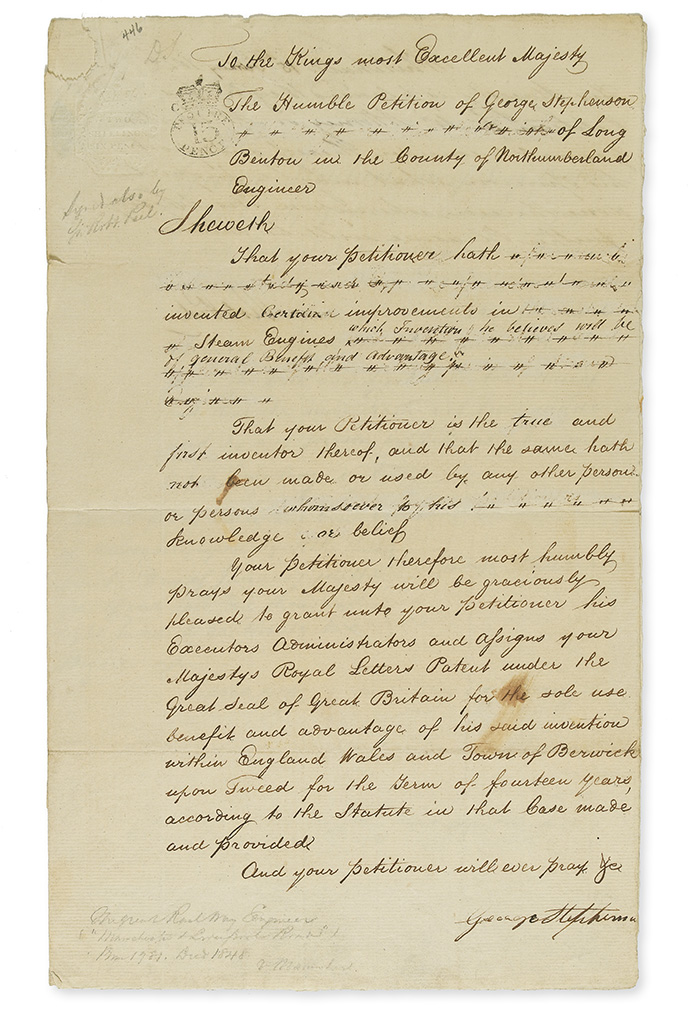 446
To the Kings most Excellent Majesty
The Humble Petition of George Stephenson
of Long
Benton in the County of Northumberland
Engineer
PENCE
Signed also by
Peel.
Sheweth
That your Petitioner hath
invented Certain improvements in
Steam Engines which Invention he believes will be
of general Benefit and Advantage.
That your Petitioner is the true and
first inventor thereof, and that the same hath
not been made or used by any other person
or persons whomsoever to his
knowledge or belief
Your Petitioner therefore most humbly
prays your Majesty will be graciously
pleased to grant unto your Petitioner his
Executors Administrators and Assigns your
Majestys Royal Letters Patent under the
Great Seal of Great Britain for the sole use
benefit and advantage of his said invention
within England Wales and Town of Berwick
upon Tweed for the Term of fourteen years,
according to the Statute in that Case made
and provided
And your Petitioner will ever pray &c
George Stephenson
Railway Engineer
Died 1848